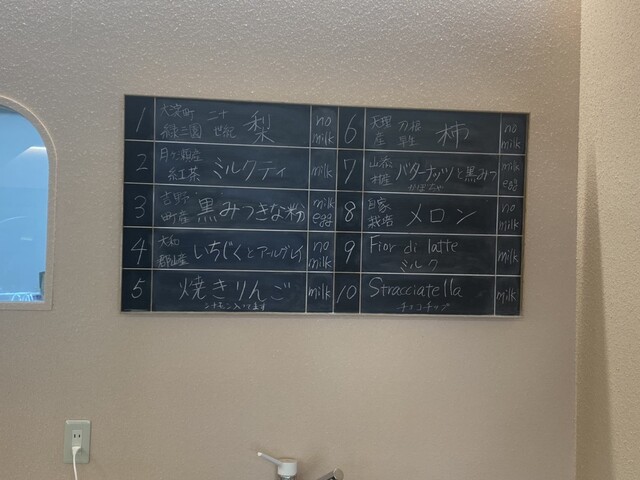 1 大淀町 二十 梨 no
世紀 milk
2 月ヶ瀬産 ミルクティ milk
紅茶
3 吉野 黒みつきな粉 milk
町産 egg
4 大和 いちじくとアールグレイ no
郡山産 milk
5 焼きりんご milk
シナモン入ってます
6 天理 刀根 柿 no
産 早生 milk
7 山添 バターナッツと黒みつ milk
村産 かぼちゃ egg
8 自家 メロン no
栽培 milk
9 Fior di latte milk
ミルク
10 Stracciatella milk
チョコチップ